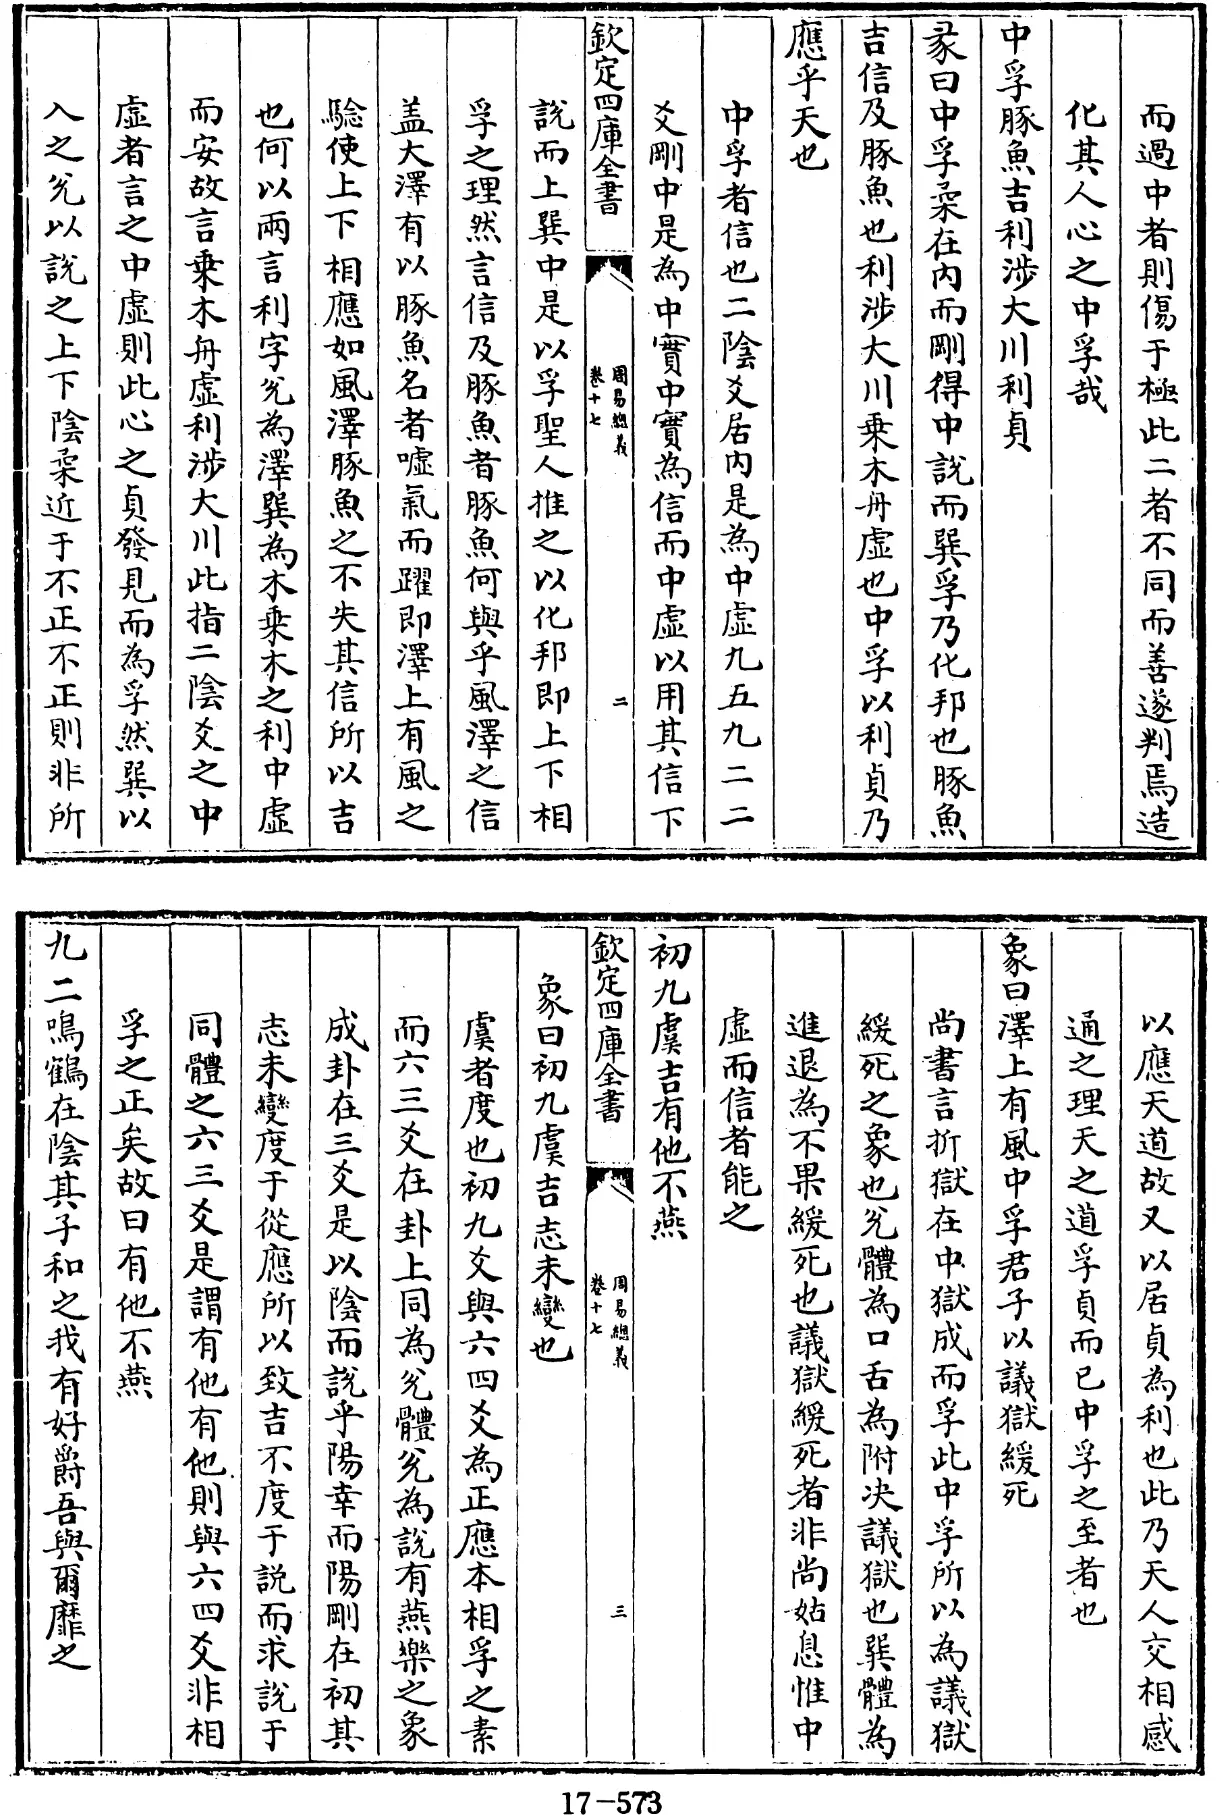 而過中者則傷于極此二者不同而善遂判焉造
化其人心之中孚哉
中孚豚魚吉利涉大川利貞
彖曰中孚柔在內而剛得中說而巽孚乃化邦也豚魚
吉信及豚魚也利涉大川乗木舟虛也中孚以利貞乃
應乎天也
中孚者信也二陰爻居內是為中虛九五九二二
爻剛中是為中實中實為信而中虛以用其信下
欽定四庫全書
周易總義
卷十七
二
說而上巽中是以孚聖人推之以化邦即上下相
孚之理然言信及豚魚者豚魚何與乎風澤之信
盖大澤有以豚魚名者噓氣而躍即澤上有風之
驗使上下相應如風澤豚魚之不失其信所以吉
也何以兩言利字兊為澤巽為木乗木之利中虛
而安故言乗木舟虛利涉大川此指二陰爻之中
虛者言之中虛則此心之貞發見而為孚然巽以
入之兊以說之上下陰柔近于不正不正則非所
以應天道故又以居貞為利也此乃天人交相感
通之理天之道孚貞而已中孚之至者也
象曰澤上有風中孚君子以議獄緩死
尚書言折獄在中獄成而孚此中孚所以為議獄
緩死之象也兊體為口舌為附決議獄也巽體為
進退為不果緩死也議獄緩死者非尚姑息惟中
虛而信者能之
初九虞吉有他不燕
欽定四庫全書
周易總義
卷十七
三
象曰初九虞吉志未變也
虞者度也初九爻與六四爻為正應本相孚之素
而六三爻在卦上同為兊體兊為說有燕樂之象
成卦在三爻是以陰而說乎陽幸而陽剛在初其
志未變度于從應所以致吉不度于說而求說于
同體之六三爻是謂有他有他則與六四爻非相
孚之正矣故曰有他不燕
九二鳴鶴在陰其子和之我有好爵吾與爾靡之
17-573